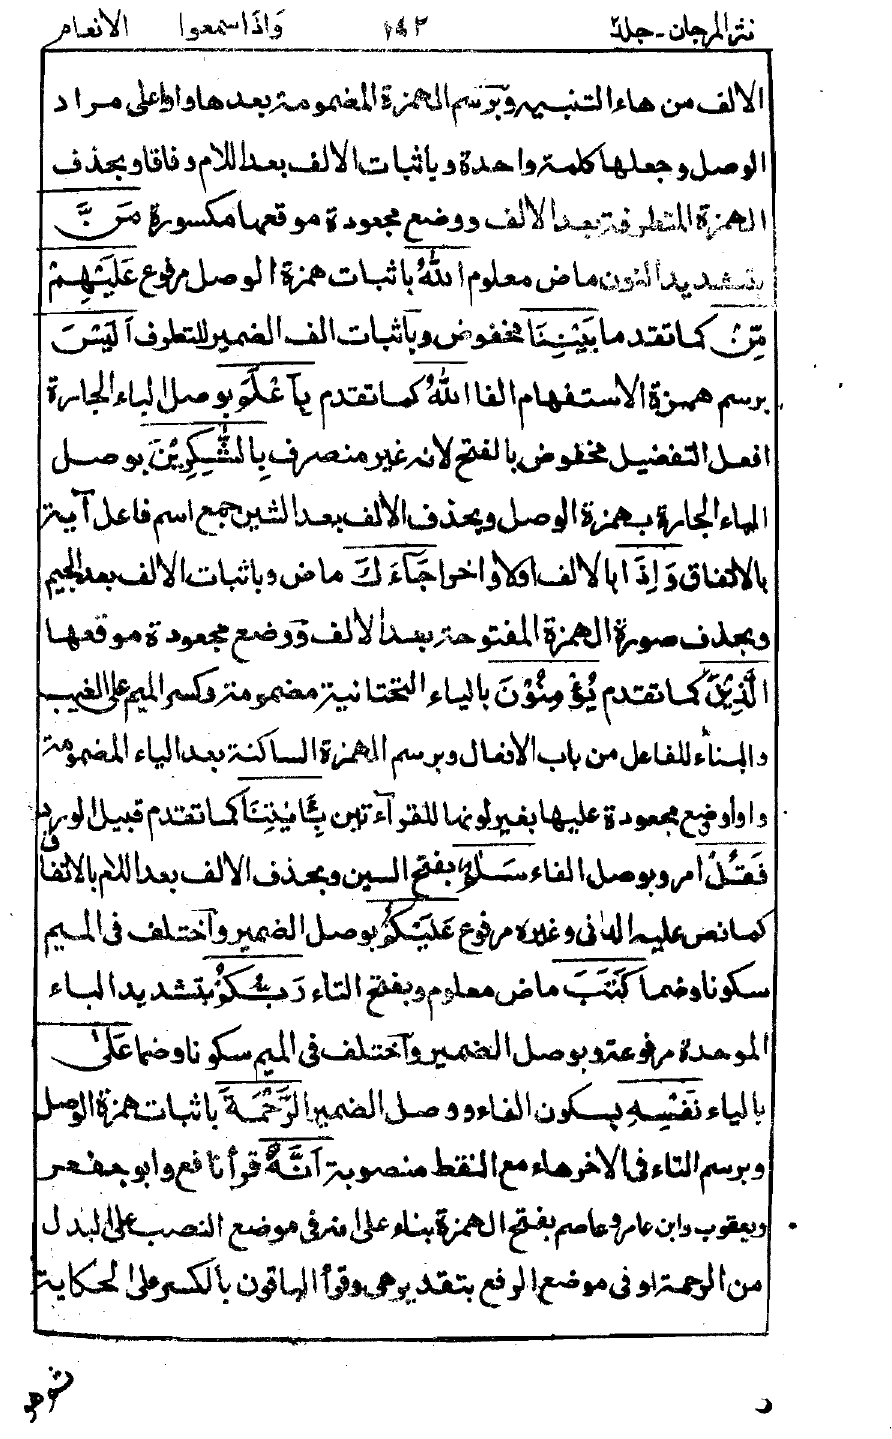 نثر المرجان - جلد ٢ ١٤٢ وَاِذَا سمعوا الانعام
الالف من هاء التنبيه وبرسم الهمزة المضمومة بعدها واوا على مراد
الوصل وجعلها كلمة واحدة وباثبات الالف بعد اللام وفاقا وبحذف
الهمزة المتطرفة بعد الالف ووضع مجعودة موقعها مكسورة مَنَّ
بتشديد النون ماض معلوم اللّٰهُ باثبات همزة الوصل مرفوع عَلَيْهِمْ
مِّنْ كما تقدما بَيْنِنَا مخفوض وباثبات الف الضمير للتطرف اَلَيْسَ
برسم همزة الاستفهام الفا اللّٰهُ كما تقدم بِاَعْلَمَ بوصل الباء الجارة
افعل التفضيل مخفوض بالفتح لانه غير منصرف بِالشّٰكِرِيْنَ بوصل
الباء الجارة بهمزة الوصل وبحذف الالف بعد الشين جمع اسم فاعل آية
بالاتفاق وَاِذَا بالالف اولا واخرا جَآءَكَ ماض وباثبات الالف بعد الجيم
وبحذف صورة الهمزة المفتوحة بعد الالف ووضع مجعودة موقعها
الَّذِيْنَ كما تقدم يُؤْمِنُوْنَ بالياء التحتانية مضمومة وكسر الميم على الغيب
والبناء للفاعل من باب الافعال وبرسم الهمزة الساكنة بعد الياء المضمومة
واوا وضع مجعودة عليها بغير لونها للقراءتين بِئَايٰتِنَا كما تقدم قبيل الورد
فَقُلْ امر وبوصل الفاء سَلٰمٌ بفتح السين وبحذف الالف بعد اللام بالاتفاق
كما نص عليه الداني وغيره مرفوع عَلَيْكُمْ بوصل الضمير واختلف في الميم
سكونا وضما كَتَبَ ماض معلوم وبفتح التاء رَبُّكُمْ بتشديد الباء
الموحدة مرفوعة وبوصل الضمير واختلف في الميم سكونا وضما عَلٰى
بالياء نَفْسِهِ بسكون الفاء ووصل الضمير الرَّحْمَةَ باثبات همزة الوصل
وبرسم التاء في الاخر هاء مع النقط منصوبة اَنَّهٗ قرأ نافع وابو جعفر
ويعقوب وابن عامر وعاصم بفتح الهمزة بناء على انه في موضع النصب على البدل
من الرحمة او في موضع الرفع بتقدير هي وقرأ الباقون بالكسر على الحكاية